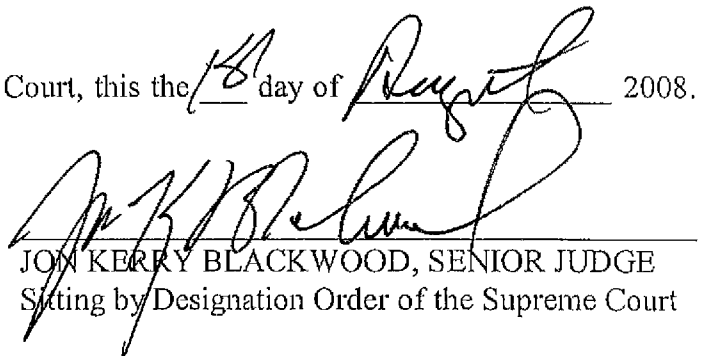 Court, this the day of August 2008.
Jon K Blackwood
JON KERRY BLACKWOOD, SENIOR JUDGE
Sitting by Designation Order of the Supreme Court